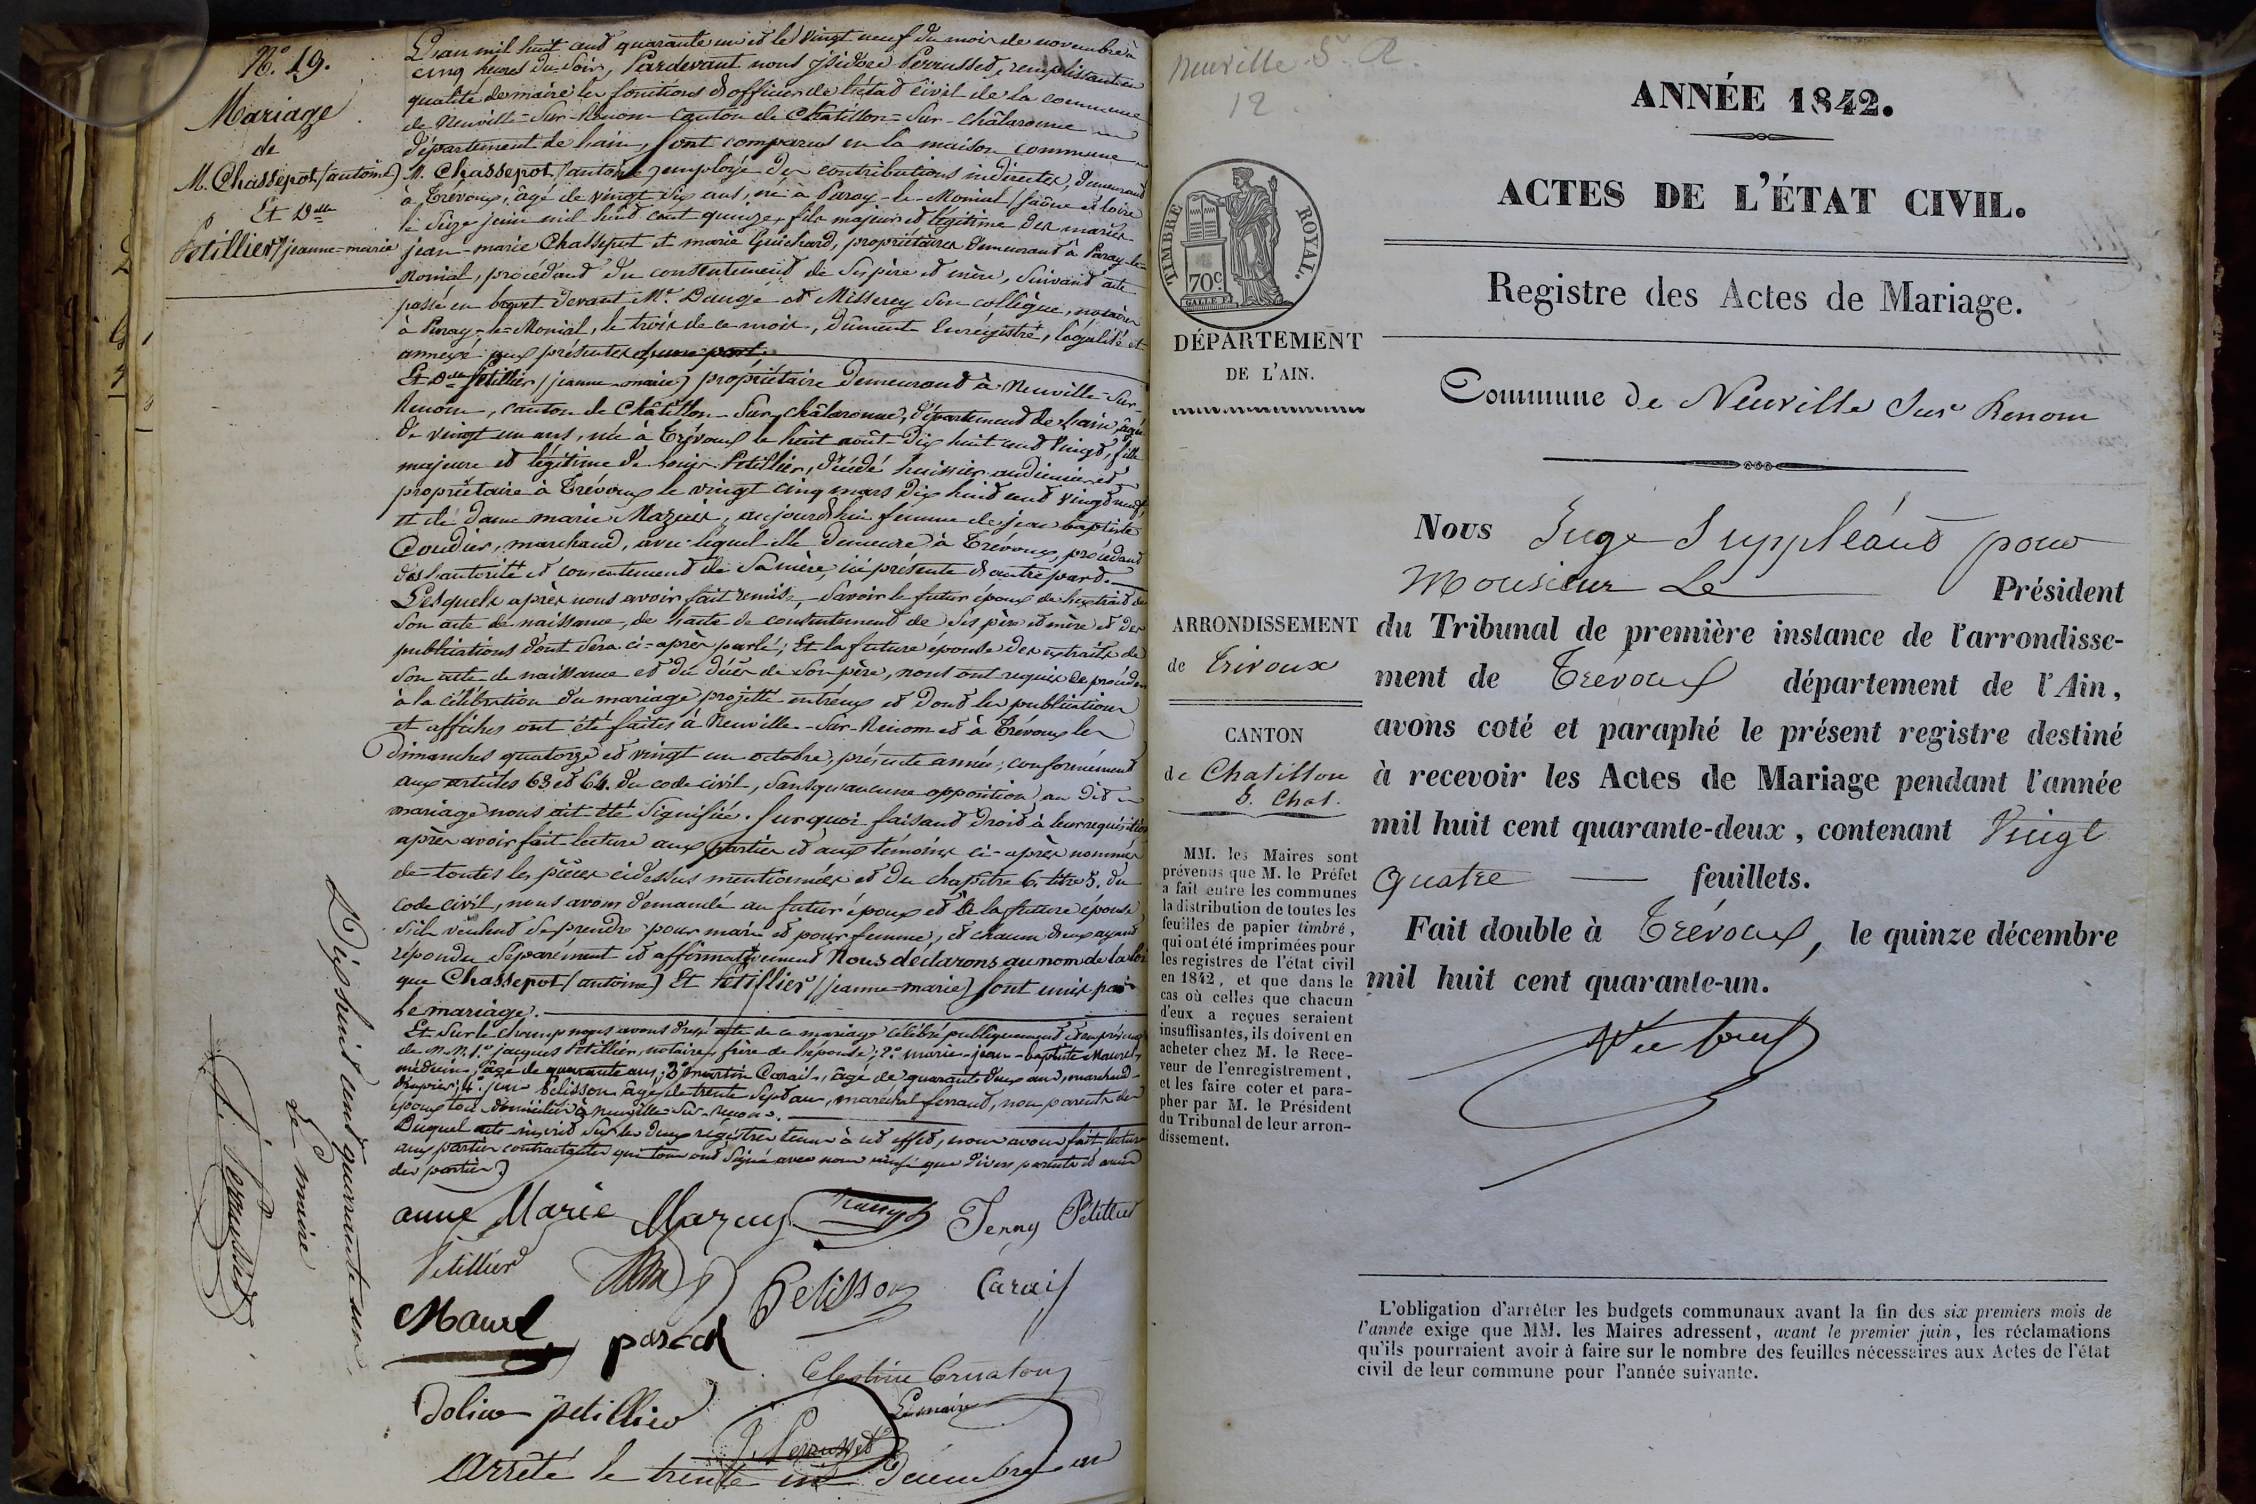 N.º 19.
Mariage
de
M. Chassepot (antoine)
Et Dlle
Petillier (jeanne=marie
L'an mil huit cent quarante un et le vingt neuf du mois de novembre à
cinq heures du soir, Pardevant nous isidore Perrusset, remplissant en
qualité de maire les fonctions d'officier de l'état civil de la commune
de Neuville=Sur=Renom canton de Châtillon=Sur=Châlaronne
département de l'ain, sont comparus en la maison commune
M. Chassepot (antoine) employé des contributions indirectes, demeurant
à Trévoux, âgé de vingt six ans, né à Paray-le-Monial (saône et loire
le seize juin mil huit cent quinze, fils majeur et légitime des mariés
jean-marie Chassepot et marie Guichard, propriétaires demeurant à Paray-le-
Monial, procédant du consentement de ses père et mère, suivant acte
passé en brevet devant Me. Daugé et Misserey son collègue, notaires
à Paray-le-Monial, le trois de ce mois, dûment enregistré, légalisé et
annexé aux présentes d'une part.
Et Dlle Petillier (jeanne-marie) propriétaire demeurant à Neuville-Sur-
Renom, canton de Châtillon-Sur-Châlaronne, département de l'ain, âgée
de vingt un ans, née à Trévoux le huit août dix huit cent vingt, fille
majeure et légitime de louis Petillier, décédé huissier audiencier et
propriétaire à Trévoux le vingt cinq mars dix huit cent vingt neuf,
et de dame marie Mazuir, aujourd'hui femme de jean baptiste
Coudier, marchand, avec lequel elle demeure à Trévoux, procédant
de l'autorité et consentement de sa mère, ici présente d'autre part.
Lesquels après nous avoir fait remise, savoir le futur époux de l'extrait de
son acte de naissance, de l'acte de consentement de ses père et mère et des
publications dont sera ci-après parlé; Et la future épouse des extraits de
son acte de naissance et du décès de son père, nous ont requis de procéder
à la célébration du mariage projetté entr'eux et dont les publications
et affiches ont été faites à Neuville-Sur-Renom et à Trévoux les
Dimanches quatorze et vingt un octobre, présente année, conformément
aux articles 63 et 64 du code civil, sans qu'aucune opposition au dit
mariage nous ait été signifiée. Sur quoi faisant droit à leur requisition
après avoir fait lecture aux parties et aux témoins ci-après nommés
de toutes les pièces cidessus mentionnées et du chapitre 6. titre 5. du
code civil, nous avons demandé au futur époux et à la future épouse
s'ils veulent se prendre pour mari et pour femme, et chacun d'eux ayant
répondu séparément et affirmativement Nous déclarons au nom de la loi
que Chassepot (antoine) Et Petillier (jeanne=marie) sont unis par
le mariage.
Et sur le champ nous avons dressé acte de ce mariage célébré publiquement et en présence
de M.M. 1.º jacques Petillier, notaire, frère de l'épouse; 2.º marie-jean-baptiste Maurel,
médecin, âgé de quarante ans; 3.º martin Carail, âgé de quarante deux ans, marchand
drapier; 4.º jean Pelisson âgé de trente sept ans, maréchal ferrant, non parents des
époux tous domiciliés à Neuville-Sur-renom.
Duquel acte inscrit sur les deux registres tenus à cet effet, nous avons fait lecture
aux parties contractantes qui tous ont signé avec nous ainsi que divers parents et amis
des parties.)
anne Marie Mazuy Jenny Petillier
Petillier Pelisson Carail
Maurel pascal
Celestine
Le maire
petillier
J. Perrusset
Arrêté le trente un Décembre an
Dix huit cent quarante un,
Le maire
J. Perrusset
Neuville S. R.
12
TIMBRE ROYAL.
70c.
ANNÉE 1842.
ACTES DE L'ÉTAT CIVIL.
Registre des Actes de Mariage.
DÉPARTEMENT
DE L'AIN.
Commune de Neuville Sur Renom
ARRONDISSEMENT
de Trévoux
CANTON
de Chatillon
S. Chal.
MM. les Maires sont
prévenus que M. le Préfet
a fait entre les communes
la distribution de toutes les
feuilles de papier timbré,
qui ont été imprimées pour
les registres de l'état civil
en 1842, et que dans le
cas où celles que chacun
d'eux a reçues seraient
insuffisantes, ils doivent en
acheter chez M. le Rece-
veur de l'enregistrement,
et les faire coter et para-
pher par M. le Président
du Tribunal de leur arron-
dissement.
Nous Juge Suppléant pour
Monsieur Le Président
du Tribunal de première instance de l'arrondisse-
ment de Trévoux département de l'Ain,
avons coté et paraphé le présent registre destiné
à recevoir les Actes de Mariage pendant l'année
mil huit cent quarante-deux, contenant Vingt
quatre — feuillets.
Fait double à Trévoux, le quinze décembre
mil huit cent quarante-un.
L'obligation d'arrêter les budgets communaux avant la fin des six premiers mois de
l'année exige que MM. les Maires adressent, avant le premier juin, les réclamations
qu'ils pourraient avoir à faire sur le nombre des feuilles nécessaires aux Actes de l'état
civil de leur commune pour l'année suivante.